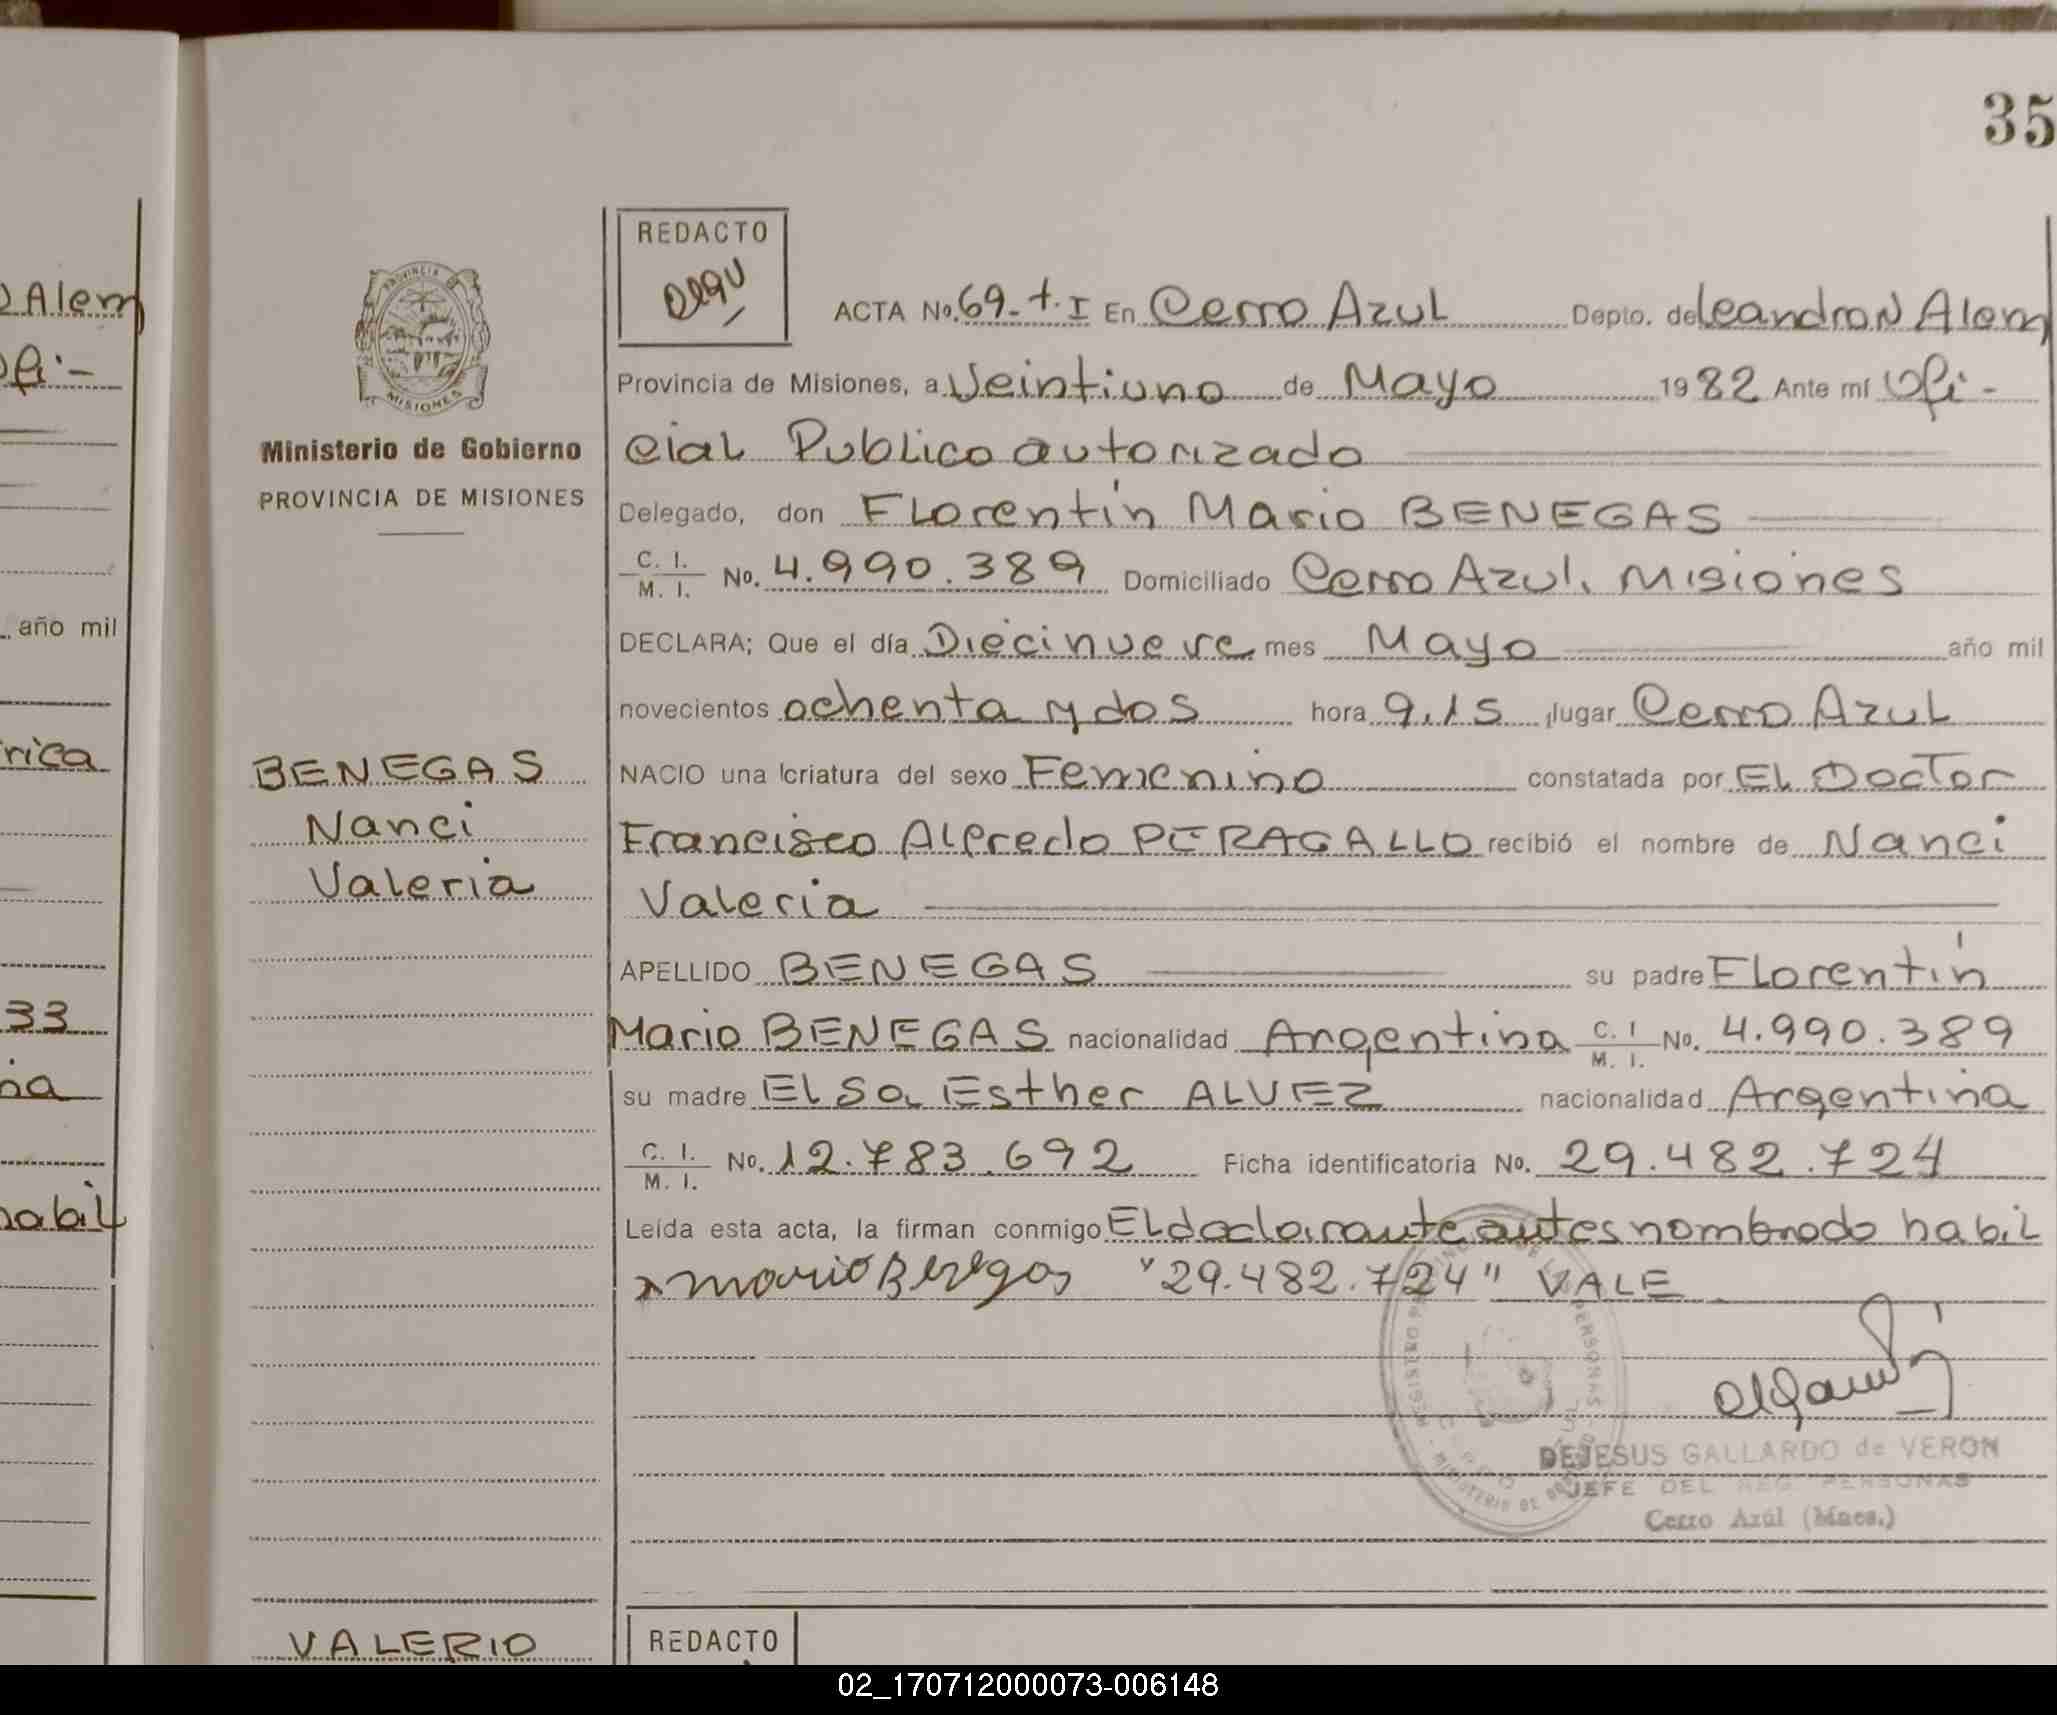 35
REDACTO
ACTA No. 69-t.I En Cerro Azul Depto. de Leandro N Alem
Provincia de Misiones, a Veintiuno de Mayo 1982 Ante mí Ofi-
cial Publico autorizado
Delegado, don Florentín Mario BENEGAS
C. I.
M. I. No. 4.990.389 Domiciliado Cerro Azul, Misiones
DECLARA; Que el día Diecinueve mes Mayo año mil
novecientos ochenta y dos hora 9,15 lugar Cerro Azul
NACIO una criatura del sexo Femenino constatada por El Doctor
Francisco Alfredo PERAGALLO recibió el nombre de Nanci
Valeria
APELLIDO BENEGAS su padre Florentín
Mario BENEGAS nacionalidad Argentina C. I M. I. No. 4.990.389
su madre Elsa Esther ALVEZ nacionalidad Argentina
C. I.
M. I. No. 12.783.692 Ficha identificatoria No. 29.482.724
Leída esta acta, la firman conmigo El declarante antes nombrado habil
x Mario Benegas "29.482.724" VALE
DEJESUS GALLARDO de VERON
JEFE DEL REG. PERSONAS
Cerro Azúl (Mnes.)
PROVINCIA
MISIONES
Ministerio de Gobierno
PROVINCIA DE MISIONES
BENEGAS
Nanci
Valeria
VALERIO
REDACTO
Alem
Ofi-
año mil
rica
33
na
habil
02_170712000073-006148